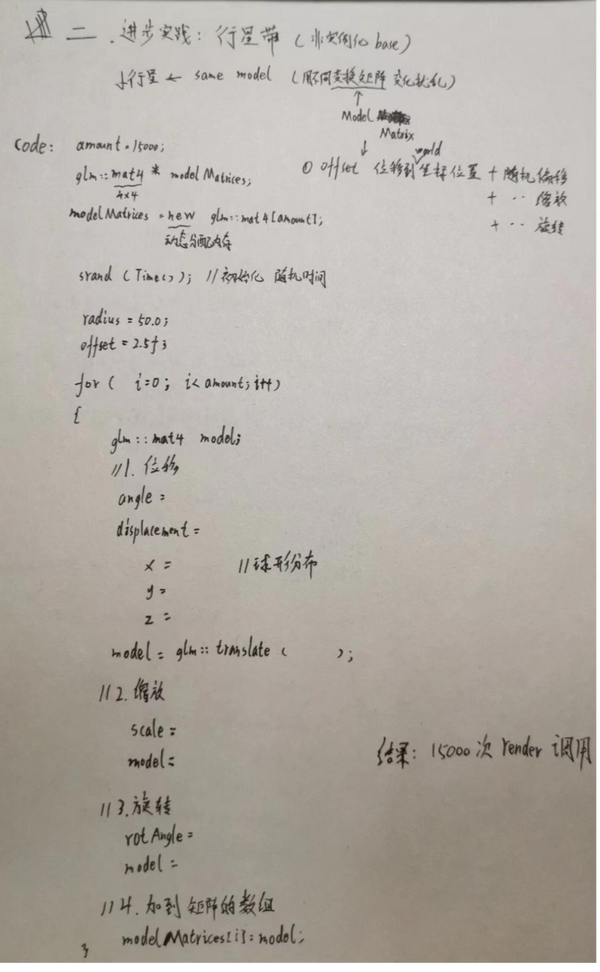 二. 进步实践: 行星带 (非实例化 base)
小行星 ← same model (用不同变换矩阵 变化扰乱)
Model Matrix
world
code: amount = 15000;
① offset 位移到坐标位置 + 随机偏移
+ ·· 缩放
+ ·· 旋转
glm::mat4 * modelMatrices;
4x4
modelMatrices = new glm::mat4[amount];
动态分配内存
srand (Time()); //初始化 随机时间
radius = 50.0;
offset = 2.5f;
for( i=0; i<amount; i++)
{
glm::mat4 model;
//1. 位移
angle =
displacement =
x = //球形分布
y =
z =
model = glm::translate ( );
//2. 缩放
scale =
model =
结果: 15000次 render 调用
//3. 旋转
rotAngle =
model =
//4. 加到矩阵的数组
modelMatrices[i] = model;
}